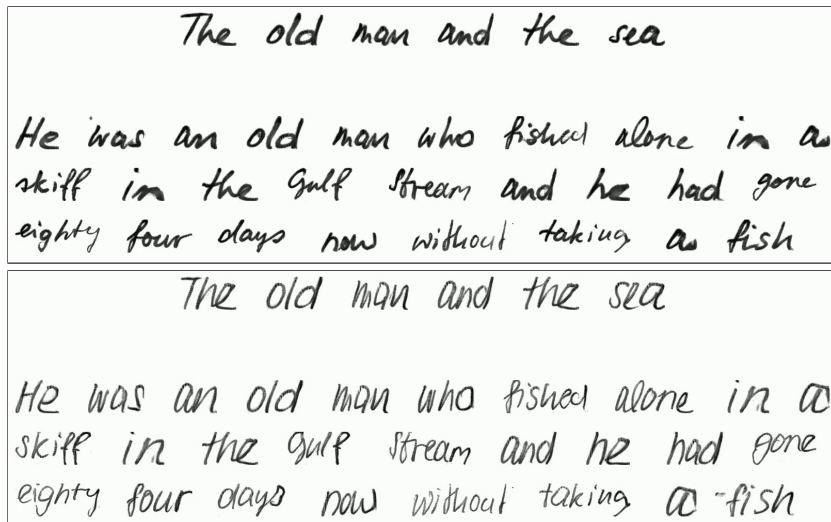 The old man and the sea
He was an old man who fished alone in a
skiff in the Gulf Stream and he had gone
eighty four days now without taking a fish
The old man and the sea
He was an old man who fished alone in a
skiff in the Gulf Stream and he had gone
eighty four days now without taking a fish